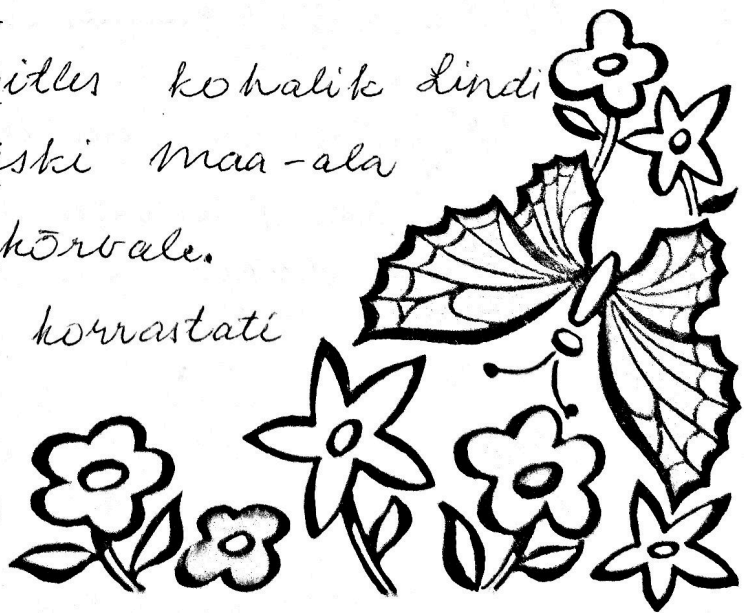 itles kohalik Lindi
iski maa-ala
kõrvale.
korrastati